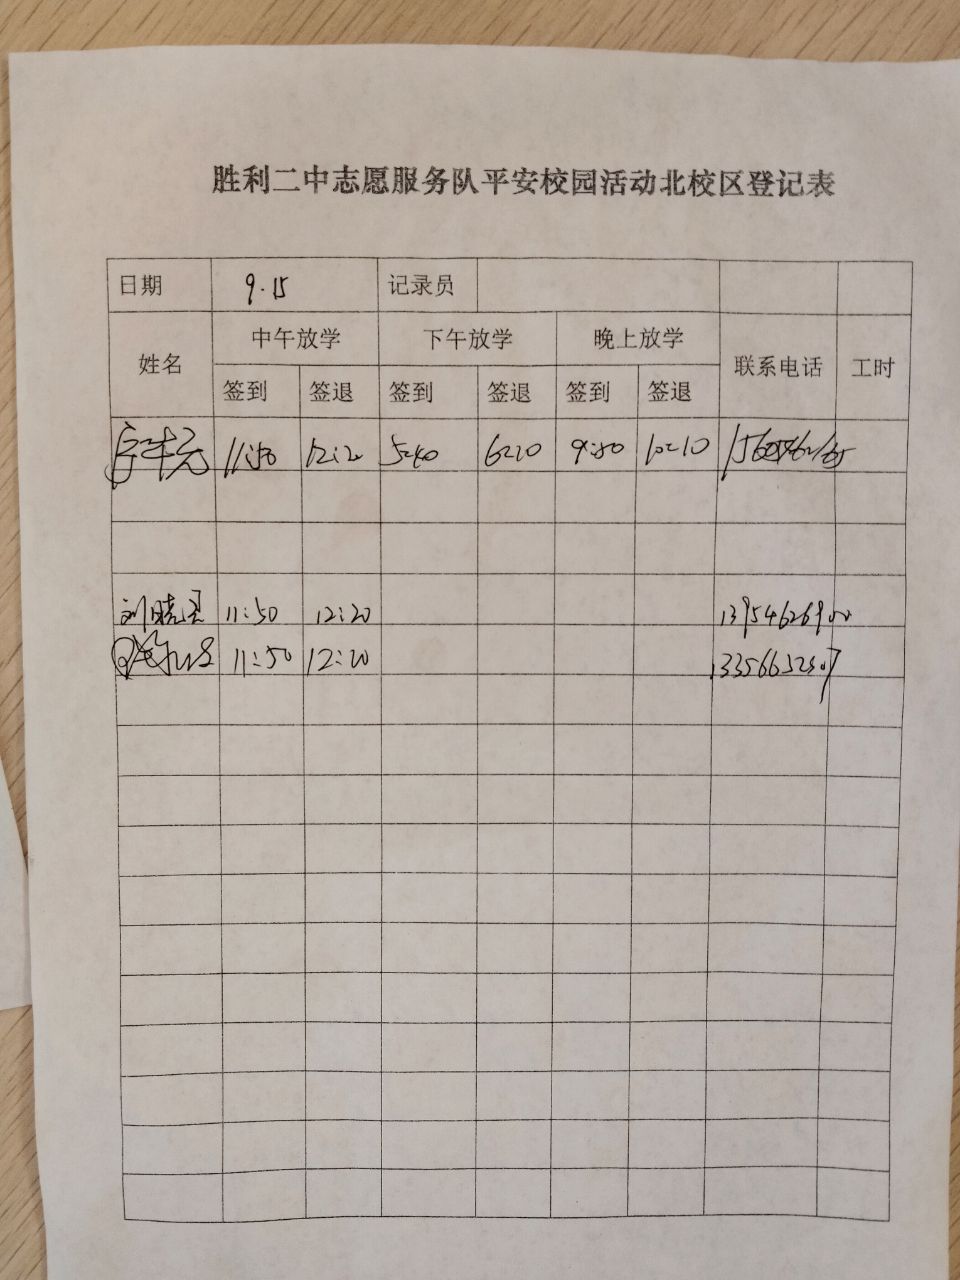 胜利二中志愿服务队平安校园活动北校区登记表
日期 9.15 记录员
姓名 中午放学 下午放学 晚上放学 联系电话 工时
签到 签退 签到 签退 签到 签退
11:50 12:20 5:40 6:20 9:50 10:10
刘晓 11:50 12:20 139546269
11:50 12:20 13356652307